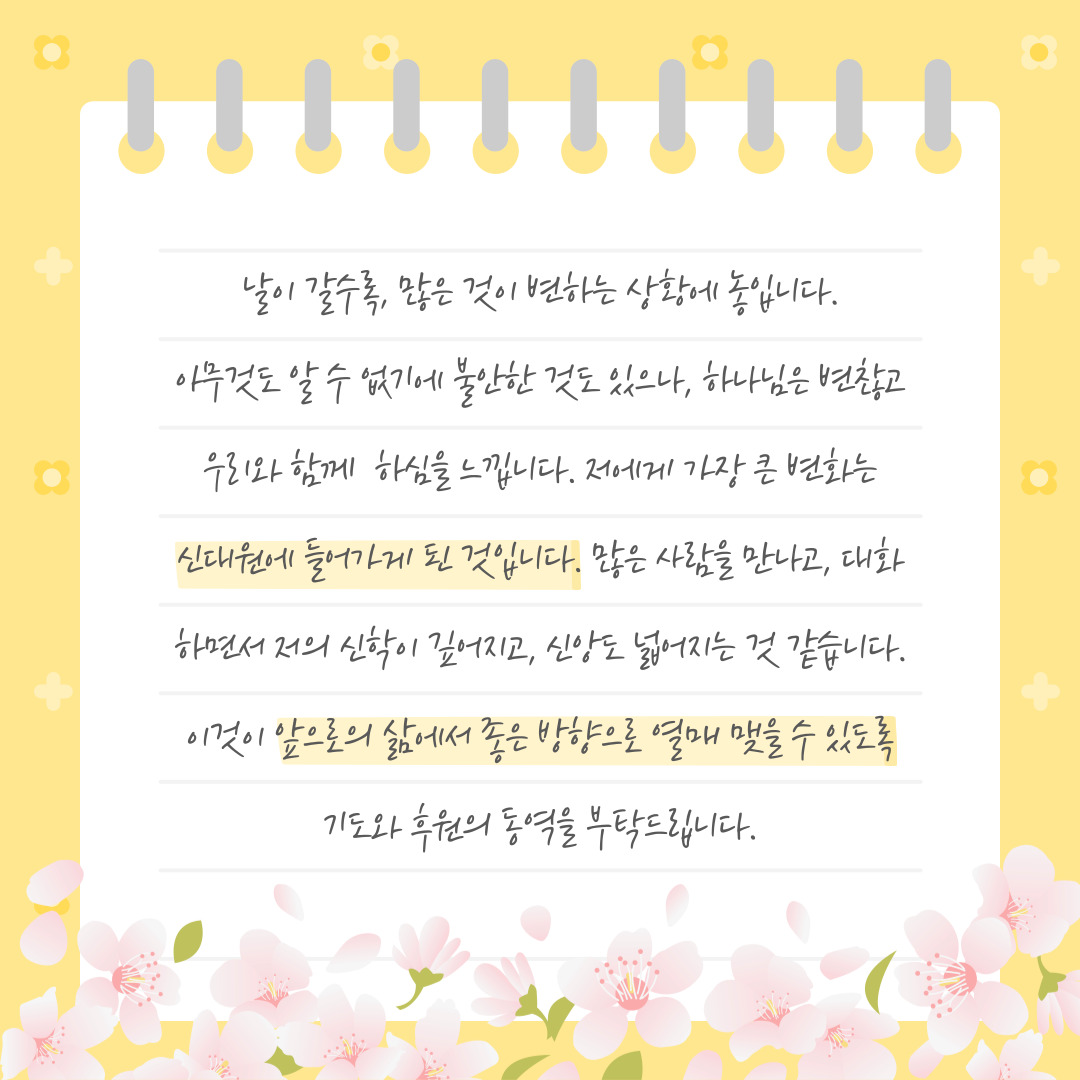 날이 갈수록, 많은 것이 변하는 상황에 놓입니다.
아무것도 알 수 없기에 불안한 것도 있으나, 하나님은 변찮고
우리와 함께 하심을 느낍니다. 저에게 가장 큰 변화는
신대원에 들어가게 된 것입니다. 많은 사람을 만나고, 대화
하면서 저의 신학이 깊어지고, 신앙도 넓어지는 것 같습니다.
이것이 앞으로의 삶에서 좋은 방향으로 열매 맺을 수 있도록
기도와 후원의 동역을 부탁드립니다.